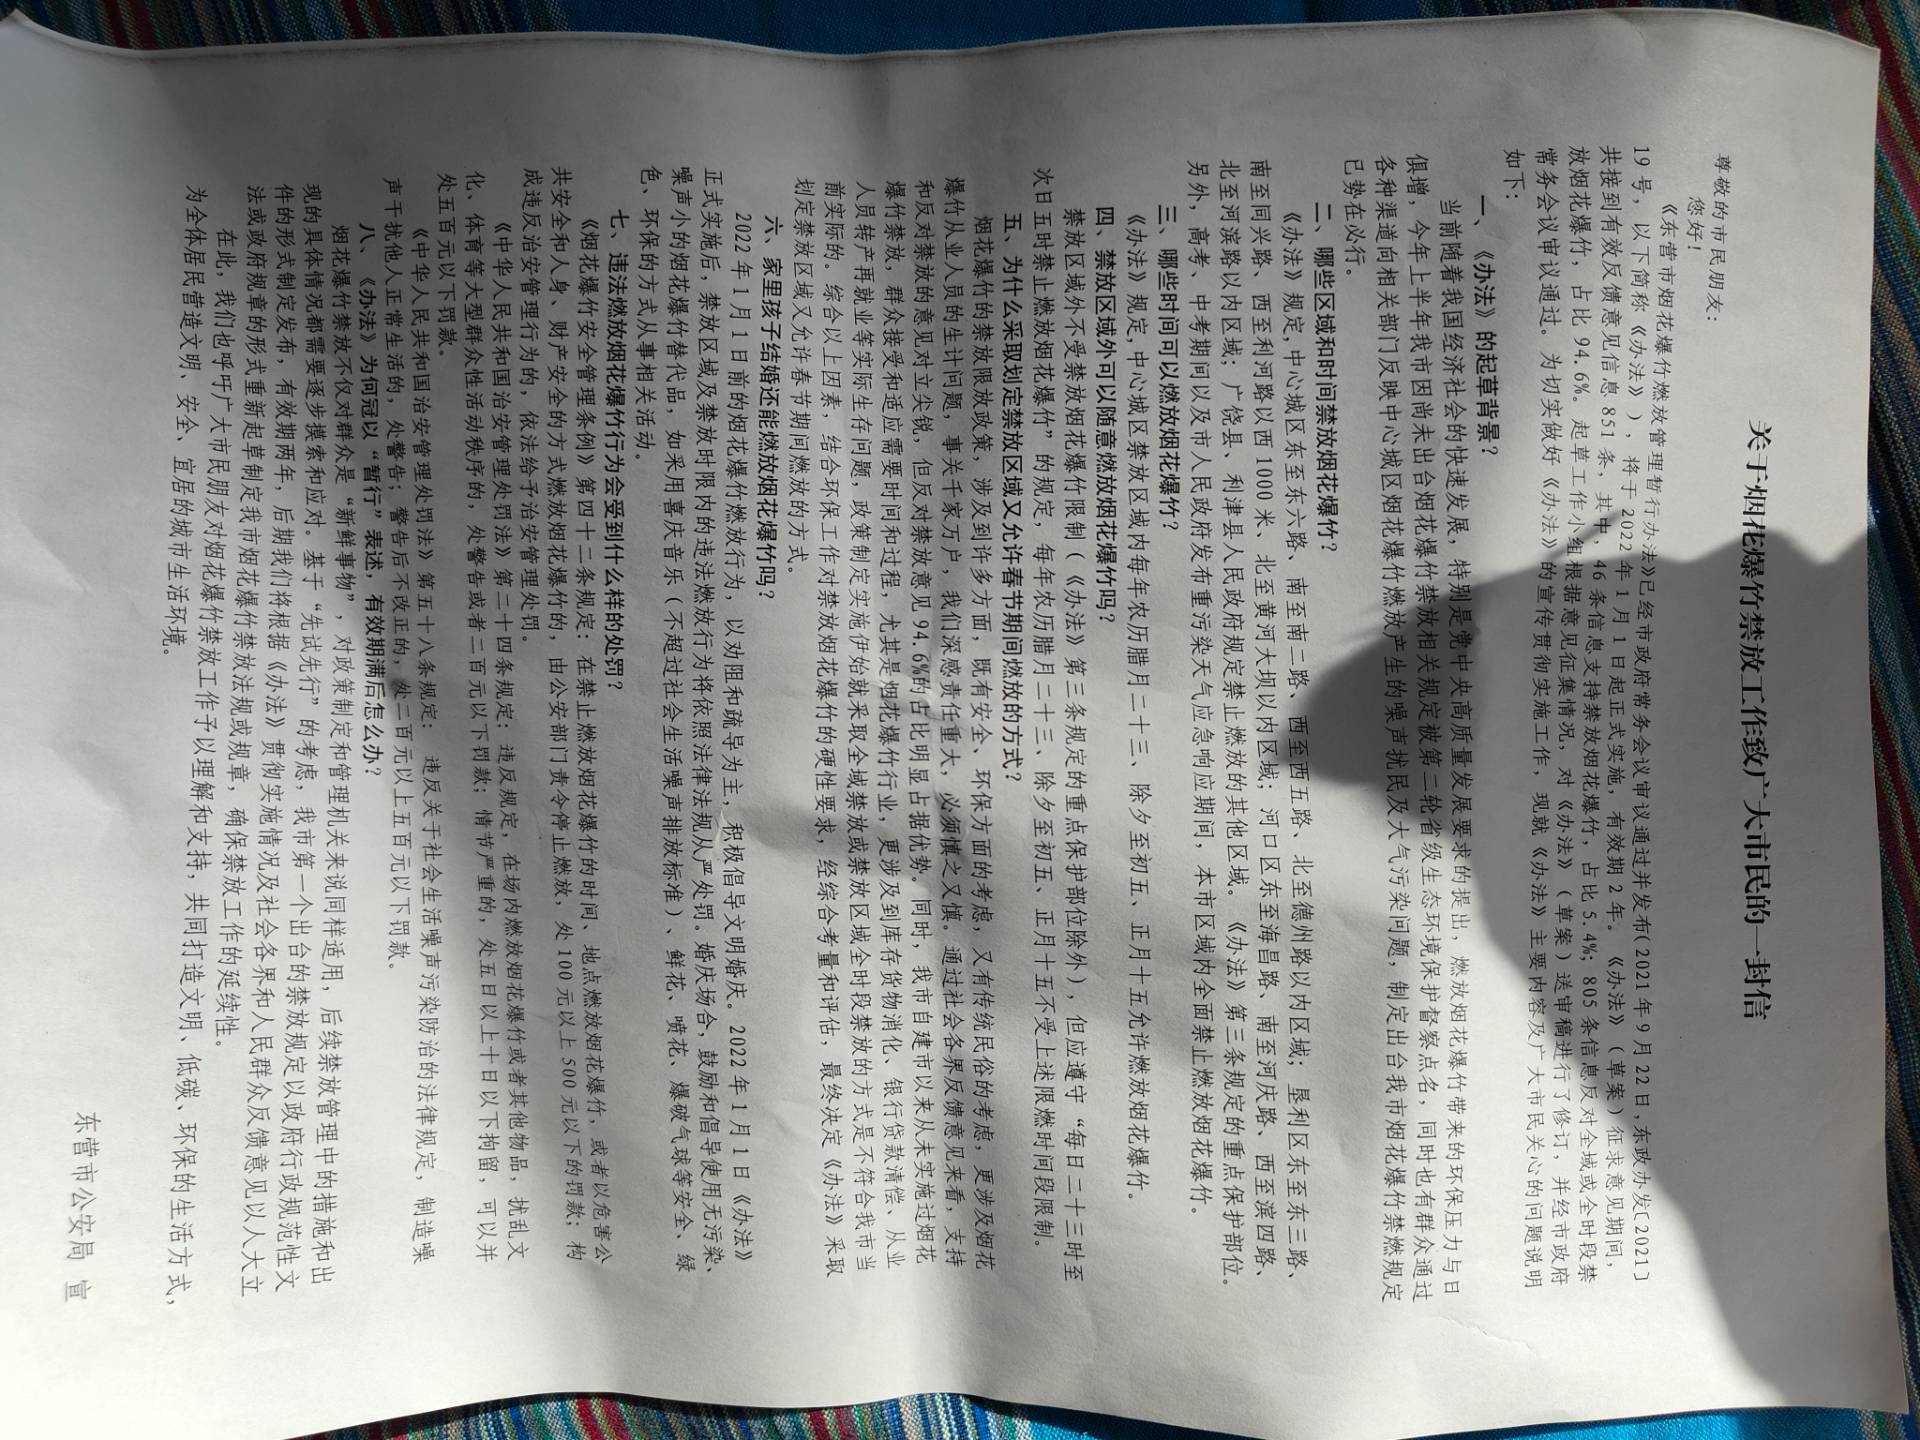 关于烟花爆竹禁放工作致广大市民的一封信
尊敬的市民朋友：
您好！
《东营市烟花爆竹燃放管理暂行办法》已经市政府常务会议审议通过并发布(2021年9月22日，东政办发〔2021〕
19号，以下简称《办法》），将于2022年1月1日起正式实施，有效期2年。《办法》（草案）征求意见期间，
共接到有效反馈意见信息851条，其中，46条信息支持禁放烟花爆竹，占比5.4%；805条信息反对全域或全时段禁
放烟花爆竹，占比94.6%。起草工作小组根据意见征集情况，对《办法》（草案）送审稿进行了修订，并经市政府
常务会议审议通过。为切实做好《办法》的宣传贯彻实施工作，现就《办法》主要内容及广大市民关心的问题说明
如下：
一、《办法》的起草背景？
当前随着我国经济社会的快速发展，特别是党中央高质量发展要求的提出，燃放烟花爆竹带来的环保压力与日
俱增，今年上半年我市因尚未出台烟花爆竹禁放相关规定被第二轮省级生态环境保护督察点名，同时也有群众通过
各种渠道向相关部门反映中心城区烟花爆竹燃放产生的噪声扰民及大气污染问题，制定出台我市烟花爆竹禁燃规定
已势在必行。
二、哪些区域和时间禁放烟花爆竹？
《办法》规定，中心城区东至东六路、南至南二路、西至西五路、北至德州路以内区域；垦利区东至东三路、
南至同兴路、西至利河路以西1000米、北至黄河大坝以内区域；河口区东至海昌路、南至河庆路、西至滨四路、
北至河滨路以内区域；广饶县、利津县人民政府规定禁止燃放的其他区域。《办法》第三条规定的重点保护部位。
另外，高考、中考期间以及市人民政府发布重污染天气应急响应期间，本市区域内全面禁止燃放烟花爆竹。
三、哪些时间可以燃放烟花爆竹？
《办法》规定，中心城区禁放区域内每年农历腊月二十三、除夕至初五、正月十五允许燃放烟花爆竹。
四、禁放区域外可以随意燃放烟花爆竹吗？
禁放区域外不受禁放烟花爆竹限制（《办法》第三条规定的重点保护部位除外），但应遵守“每日二十三时至
次日五时禁止燃放烟花爆竹”的规定，每年农历腊月二十三、除夕至初五、正月十五不受上述限燃时间段限制。
五、为什么采取划定禁放区域又允许春节期间燃放的方式？
烟花爆竹的禁放限放政策，涉及到许多方面，既有安全、环保方面的考虑，又有传统民俗的考虑，更涉及烟花
爆竹从业人员的生计问题，事关千家万户，我们深感责任重大，必须慎之又慎。通过社会各界反馈意见来看，支持
和反对禁放的意见对立尖锐，但反对禁放意见94.6%的占比明显占据优势。同时，我市自建市以来从未实施过烟花
爆竹禁放，群众接受和适应需要时间和过程，尤其是烟花爆竹行业，更涉及到库存货物消化、银行贷款清偿、从业
人员转产再就业等实际生存问题，政策制定实施伊始就采取全域禁放或禁放区域全时段禁放的方式是不符合我市当
前实际的。综合以上因素，结合环保工作对禁放烟花爆竹的硬性要求，经综合考量和评估，最终决定《办法》采取
划定禁放区域又允许春节期间燃放的方式。
六、家里孩子结婚还能燃放烟花爆竹吗？
2022年1月1日前的烟花爆竹燃放行为，以劝阻和疏导为主，积极倡导文明婚庆。2022年1月1日《办法》
正式实施后，禁放区域及禁放时限内的违法燃放行为将依照法律法规从严处罚。婚庆场合，鼓励和倡导使用无污染、
噪声小的烟花爆竹替代品，如采用喜庆音乐（不超过社会生活噪声排放标准）、鲜花、喷花、爆破气球等安全、绿
色、环保的方式从事相关活动。
七、违法燃放烟花爆竹行为会受到什么样的处罚？
《烟花爆竹安全管理条例》第四十二条规定：在禁止燃放烟花爆竹的时间、地点燃放烟花爆竹，或者以危害公
共安全和人身、财产安全的方式燃放烟花爆竹的，由公安部门责令停止燃放，处100元以上500元以下的罚款；构
成违反治安管理行为的，依法给予治安管理处罚。
《中华人民共和国治安管理处罚法》第二十四条规定：违反规定，在场内燃放烟花爆竹或者其他物品，扰乱文
化、体育等大型群众性活动秩序的，处警告或者二百元以下罚款；情节严重的，处五日以上十日以下拘留，可以并
处五百元以下罚款。
《中华人民共和国治安管理处罚法》第五十八条规定：违反关于社会生活噪声污染防治的法律规定，制造噪
声干扰他人正常生活的，处警告；警告后不改正的，处二百元以上五百元以下罚款。
八、《办法》为何冠以“暂行”表述，有效期满后怎么办？
烟花爆竹禁放不仅对群众是“新鲜事物”，对政策制定和管理机关来说同样适用，后续禁放管理中的措施和出
现的具体情况都需要逐步摸索和应对。基于“先试先行”的考虑，我市第一个出台的禁放规定以政府行政规范性文
件的形式制定发布，有效期两年，后期我们将根据《办法》贯彻实施情况及社会各界和人民群众反馈意见以人大立
法或政府规章的形式重新起草制定我市烟花爆竹禁放法规或规章，确保禁放工作的延续性。
在此，我们也呼吁广大市民朋友对烟花爆竹禁放工作予以理解和支持，共同打造文明、低碳、环保的生活方式，
为全体居民营造文明、安全、宜居的城市生活环境。
东营市公安局 宣